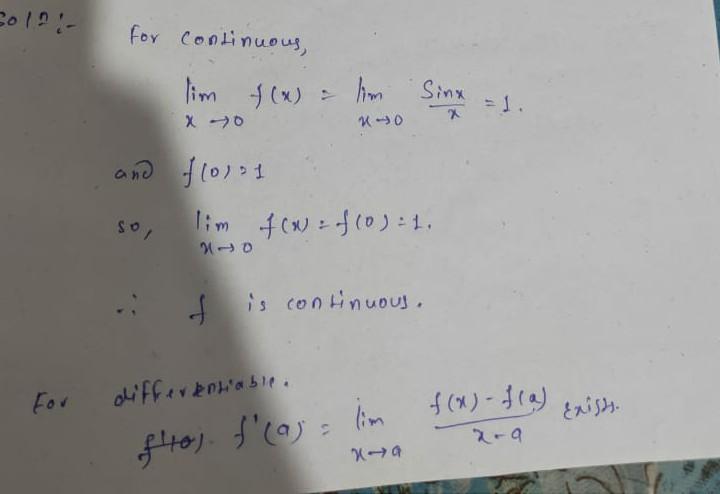 Solⁿ:-
For continuous,
lim x→0 f(x) = lim x→0 Sinx/x = 1.
and f(0) = 1
so, lim x→0 f(x) = f(0) = 1.
∴ f is continuous.
For differentiable.
f'(a) = lim x→a f(x) - f(a)/x-a exists.